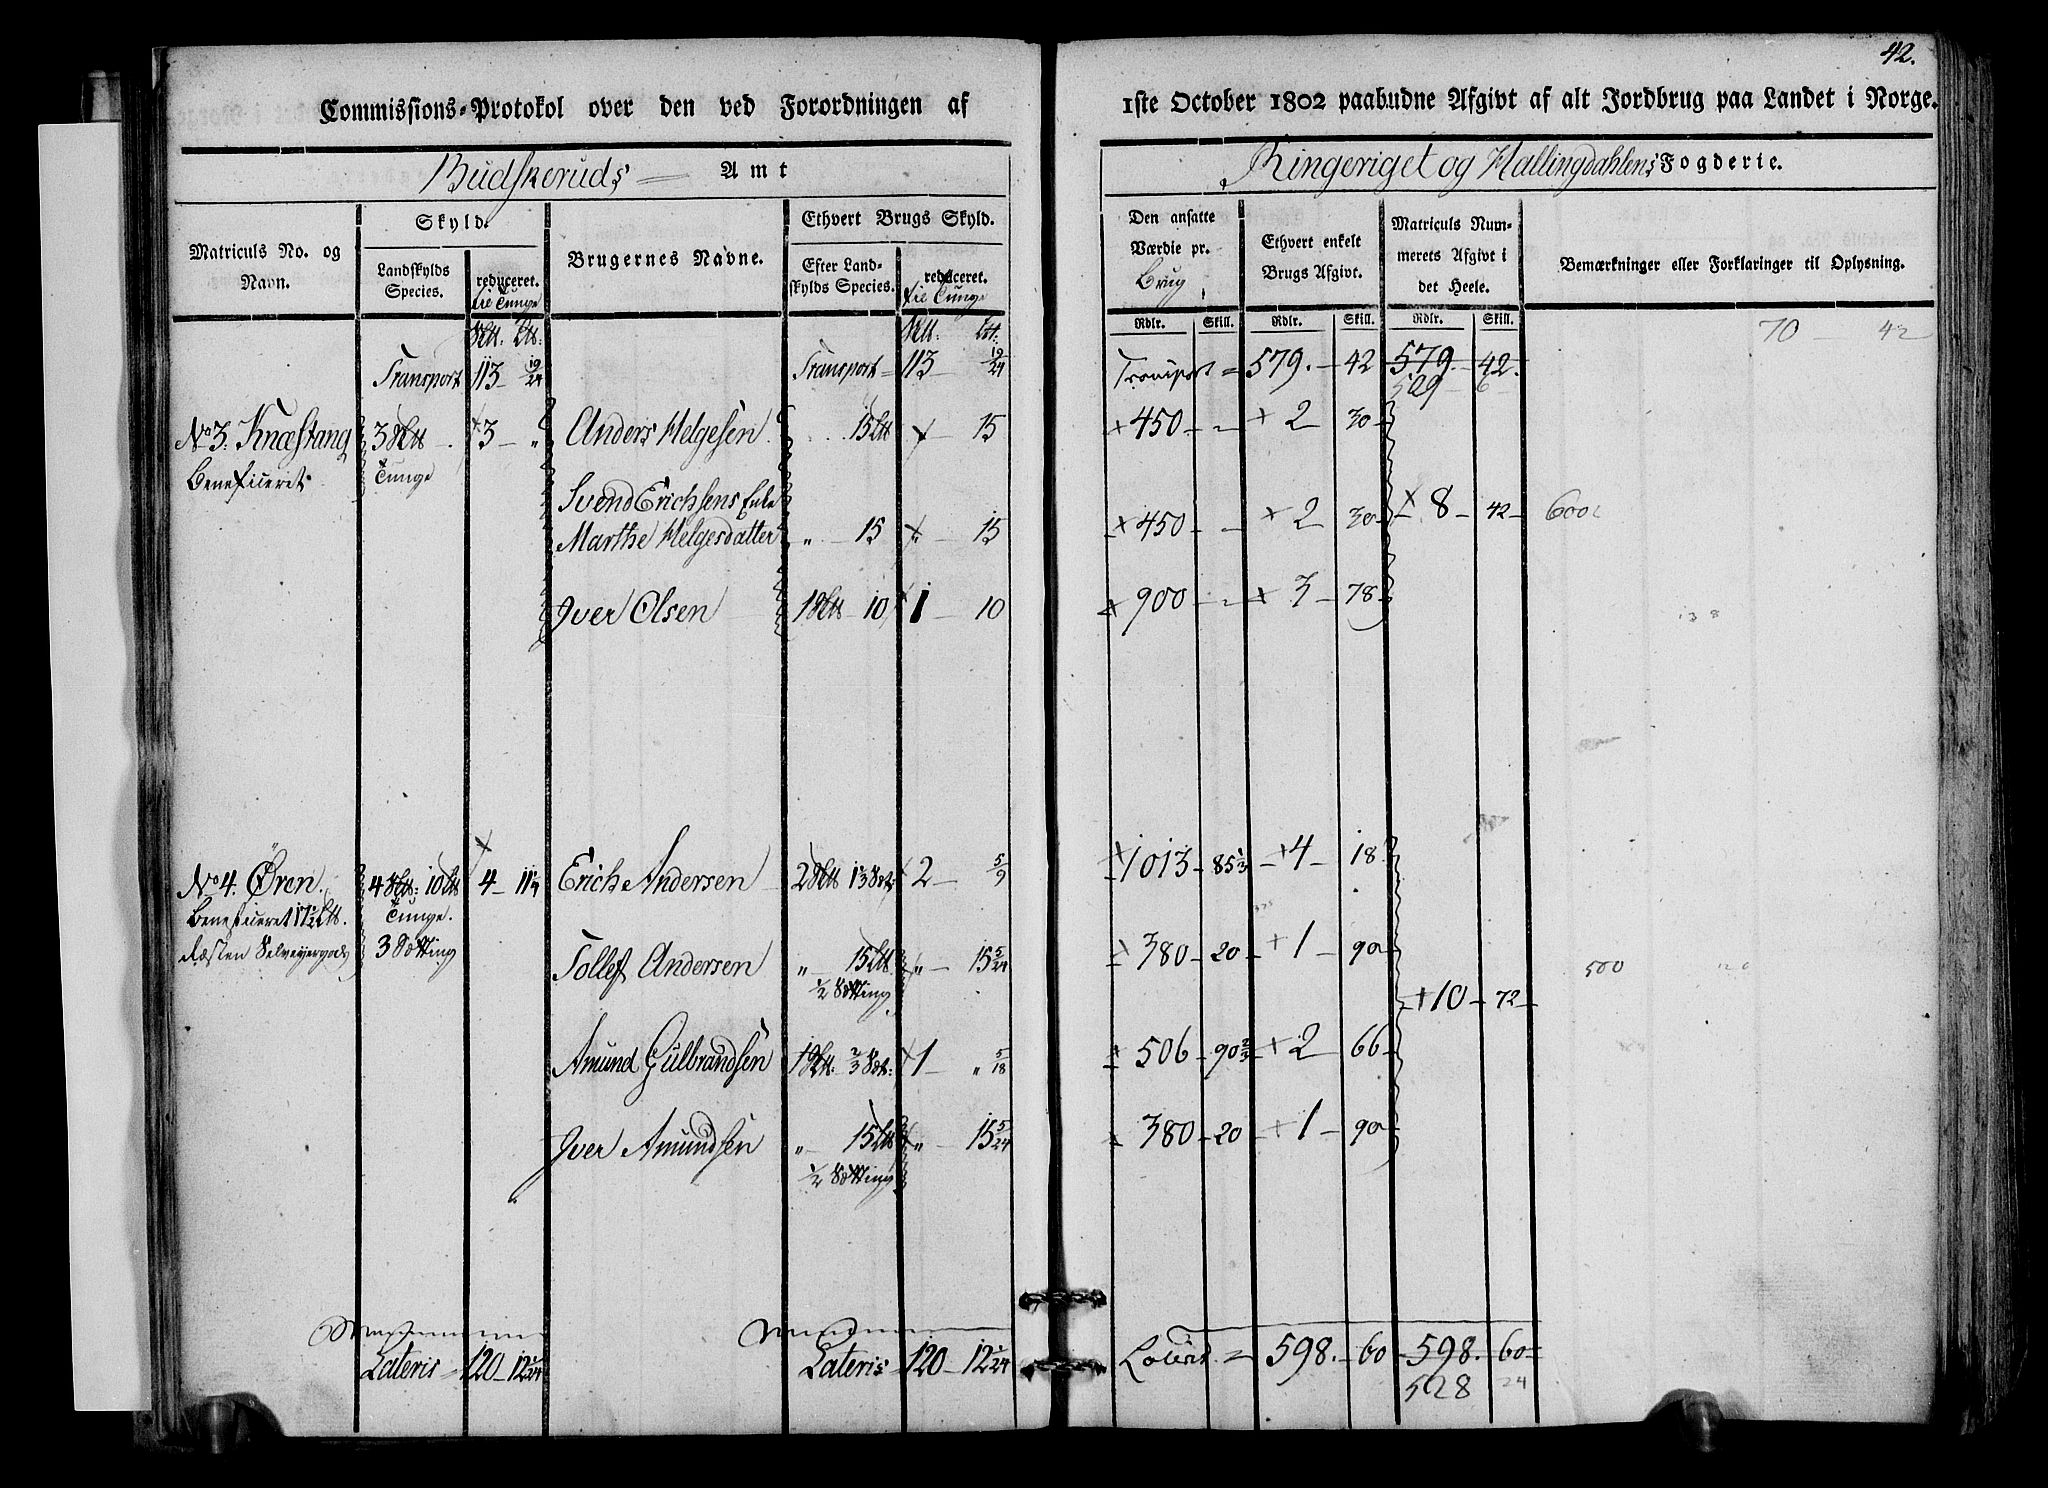 42.
Commissions-Protokol over den ved Forordningen af 1ste October 1802 paabudne Afgivt af alt Jordbrug paa Landet i Norge.
Budskeruds Amt
Ringeriget og Hallingdahlens Fogderie.
Matriculs No. og Navn.
Skyld.
Landskylds Species.
reduceret.
til Tunge
Brugernes Navne.
Ethvert Brugs Skyld.
Efter Landskylds Species.
reduceret.
til Tunge
Den ansatte Værdie pr. Brug
Ethvert enkelt Brugs Afgivt.
Matriculs Nummerets Afgivt i det Heele.
Bemærkninger eller Forklaringer til Oplysning.
Rdlr. Skill. Rdlr. Skill. Rdlr. Skill.
70 42
Transport 113 19/24 Transport 113 19/24 Transport = 579. 42 579. 42.
529 6
No 3. Knæstang 3 3 " Anders Helgesen 15 15 450 2 30
Beneficeret Tunge
Svend Erichsens Enke
Marthe Helgesdatter " 15 " 15 450 2 30 8 42 600
Iver Olsen 1 10 1 10 900 3 78
138
No 4. Øren 4 10 4 11 1/4 Erich Andersen 2 1 1/3 2 5/9 1013 85 1/3 4 18
Beneficeret 17 1/2 Tunge.
Resten Selveyergods 3 Sætting
Tollef Andersen " 15 " 15 5/24 380 20 1 90
1/2 Sætting
500 120
10 72
Amund Gulbrandsen 1 2/3 1 " 5/18 506 90 2/3 2 66
Iver Amundsen " 15 " 15 5/24 380 20 1 90
1/2 Sætting
Lateris 120 12 1/24 Lateris 120 12 1/24 Lateris = 598. 60 598. 60
528 24